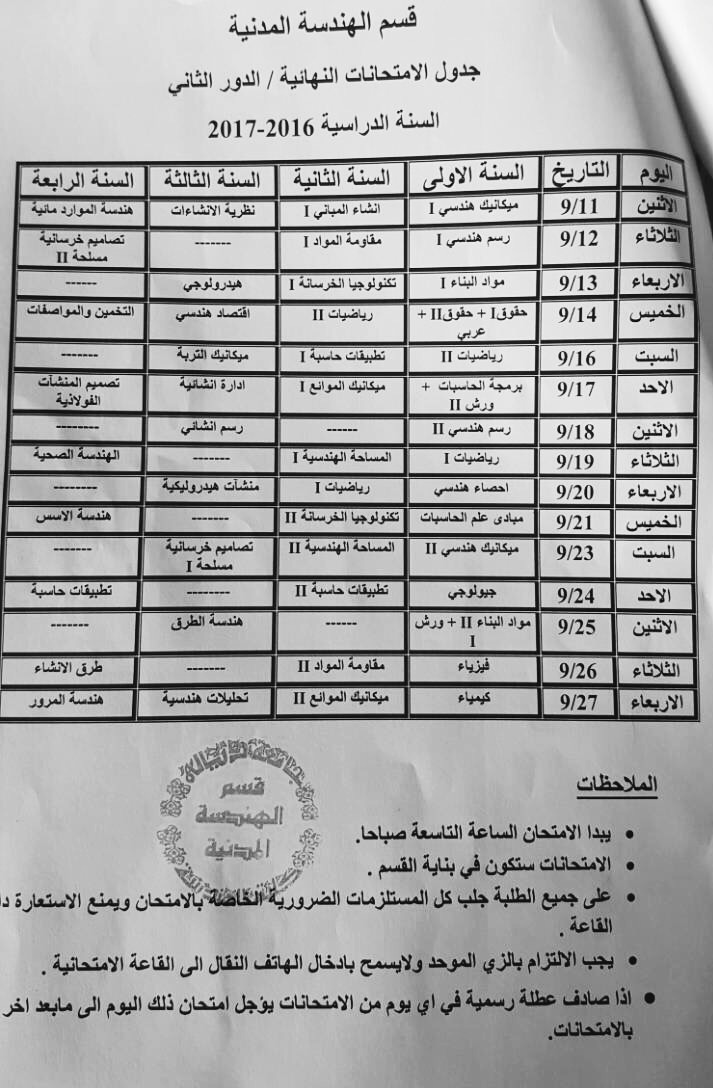 قسم الهندسة المدنية
جدول الامتحانات النهائية / الدور الثاني
السنة الدراسية 2016-2017
اليوم التاريخ السنة الاولى السنة الثانية السنة الثالثة السنة الرابعة
الاثنين 9/11 ميكانيك هندسي I انشاء المباني I نظرية الانشاءات هندسة الموارد مائية
الثلاثاء 9/12 رسم هندسي I مقاومة المواد I ------- تصاميم خرسانية
مسلحة II
الاربعاء 9/13 مواد البناء I تكنولوجيا الخرسانة I هيدرولوجي ------
الخميس 9/14 حقوقI + حقوقII + رياضيات II اقتصاد هندسي التخمين والمواصفات
عربي
السبت 9/16 رياضيات II تطبيقات حاسبة I ميكانيك التربة -------
الاحد 9/17 برمجة الحاسبات + ميكانيك الموائع I ادارة انشائية تصميم المنشآت
ورش II الفولاذية
الاثنين 9/18 رسم هندسي II ------ رسم انشائي --------
الثلاثاء 9/19 رياضيات I المساحة الهندسية I ------- الهندسة الصحية
الاربعاء 9/20 احصاء هندسي رياضيات I منشآت هيدروليكية --------
الخميس 9/21 مبادى علم الحاسبات تكنولوجيا الخرسانة II ------- هندسة الاسس
السبت 9/23 ميكانيك هندسي II المساحة الهندسية II تصاميم خرسانية -------
مسلحة I
الاحد 9/24 جيولوجي تطبيقات حاسبة II -------- تطبيقات حاسبة
الاثنين 9/25 مواد البناء II + ورش ------ هندسة الطرق -------
I
الثلاثاء 9/26 فيزياء مقاومة المواد II ------- طرق الانشاء
الاربعاء 9/27 كيمياء ميكانيك الموائع II تحليلات هندسية هندسة المرور
الملاحظات
• يبدا الامتحان الساعة التاسعة صباحا.
• الامتحانات ستكون في بناية القسم .
• على جميع الطلبة جلب كل المستلزمات الضرورية الخاصة بالامتحان ويمنع الاستعارة
القاعة .
• يجب الالتزام بالزي الموحد ولايسمح بادخال الهاتف النقال الى القاعة الامتحانية .
• اذا صادف عطلة رسمية في اي يوم من الامتحانات يؤجل امتحان ذلك اليوم الى مابعد اخر
بالامتحانات.
جامعة ديالى
قسم
الهندسة
المدنية